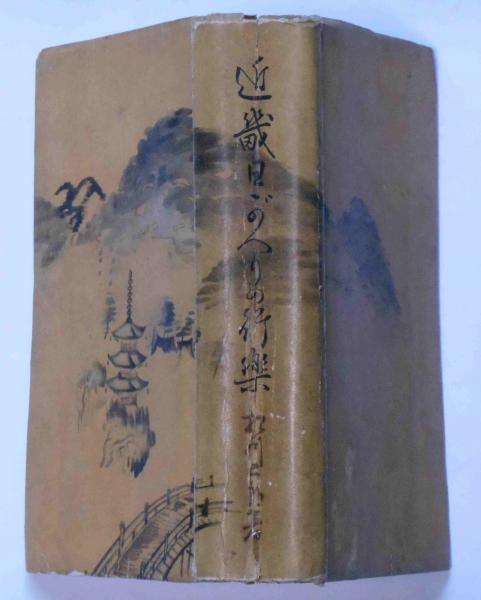 近畿日がへりの行樂
松川二郎著